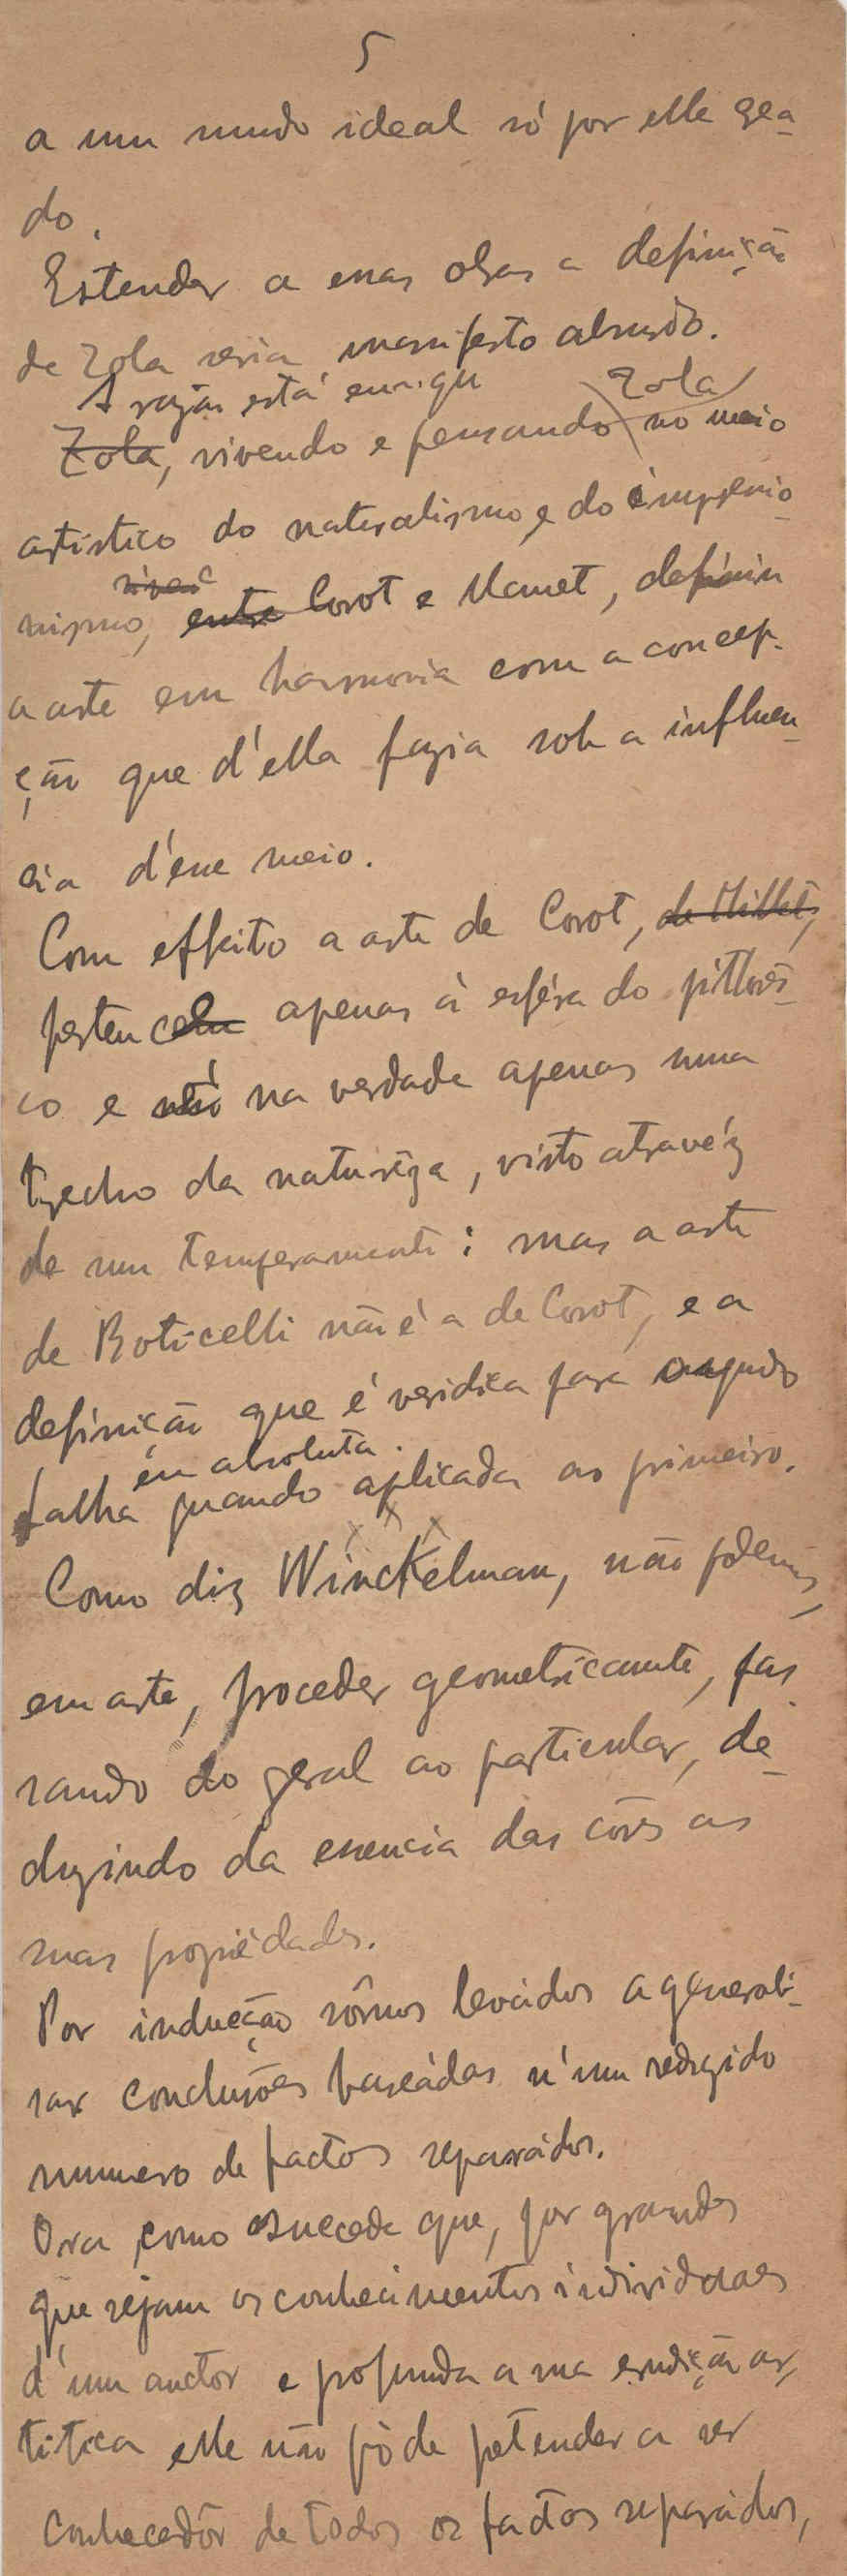 5
a um mundo ideal só por elle gea-
do.
Estender a essas obras a definição
de Zola seria manifesto absurdo.
A razão está em que Zola
Zola, vivendo e pensando no meio
artistico do naturalismo e do impressio-
nismo, entre Corot e Manet, definiu
a arte em harmonia com a concep-
ção que d'ella fazia sob a influen-
cia d'esse meio.
Com effeito a arte de Corot, de Millet,
pertence apenas á esféra do pittores-
co e é na verdade apenas um
trecho da naturêza, visto atravéz
de um temperamento: mas a arte
de Boticelli não é a de Corot, e a
definição que é veridica para o segundo
em absoluto.
falha quando aplicada ao primeiro.
Como diz Winckelman, não podemos,
em arte, proceder geometricamente, pas-
sando do geral ao particular, de-
duzindo da essencia das côres as
suas propiedades.
Por inducção sômos levádos a generali-
sar conclusões baseádas n'um reduzido
numero de factos separádos.
Ora como succede que, por grandes
que sejam os conhecimentos individuaes
d'um auctor e profunda a sua erudição ar-
tistica elle não póde pretender a ser
conhecedôr de todos os factos separádos,